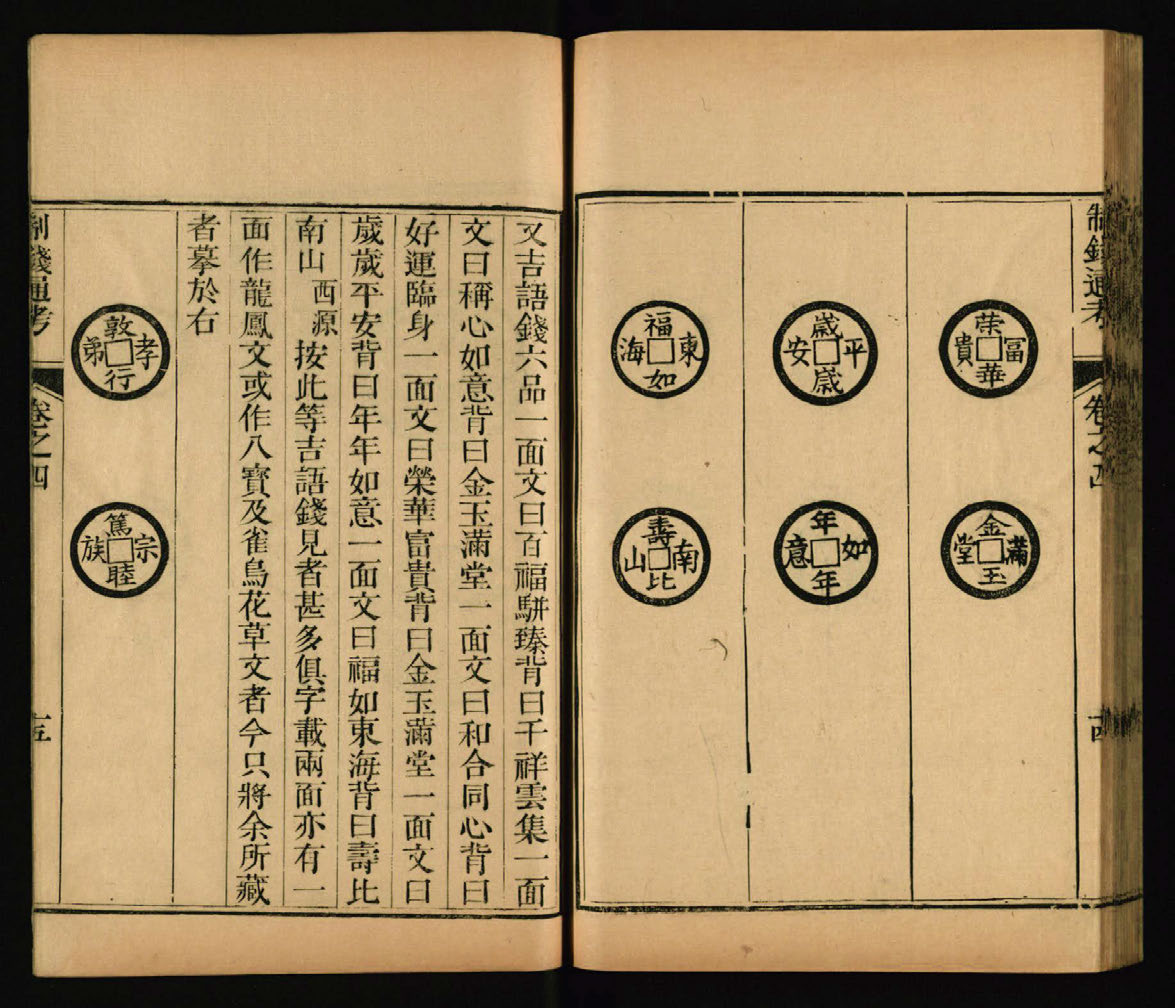 制錢通考
卷之四
十四
荣華冨貴
金玉滿堂
歲歲平安
年年如意
福如東海
壽比南山
又吉語錢六品一面文曰百福駢臻背曰千祥雲集一面
文曰稱心如意背曰金玉滿堂一面文曰和合同心背曰
好運臨身一面文曰榮華富貴背曰金玉滿堂一面文曰
歲歲平安背曰年年如意一面文曰福如東海背曰壽比
南山 西源按此等吉語錢見者甚多俱字載兩面亦有一
面作龍鳳文或作八寶及雀鳥花草文者今只將余所藏
者摹於右
敦行孝弟
篤睦宗族
制錢通考
卷之四
十五